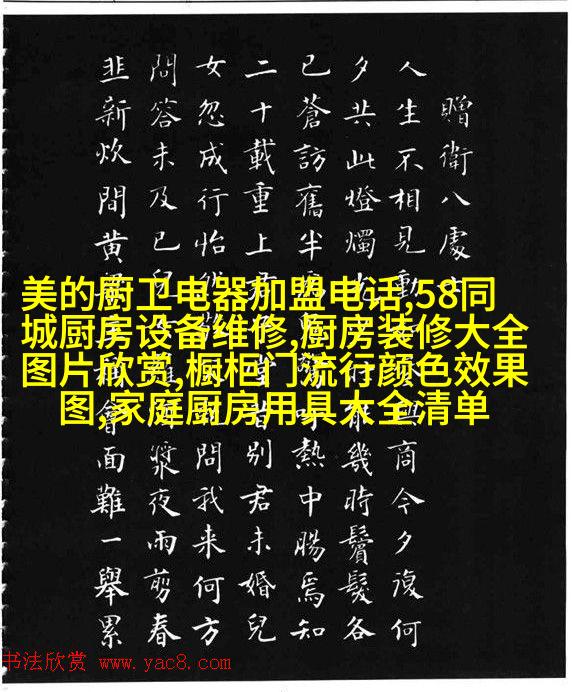 贈衛八處
人生不相見動 與商今夕復何
夕共此燈燭光 能幾時鬢髮各
已蒼訪舊半 呼熱中腸焉知
二十載重上君 堂昔別君未婚兒
女忽成行怡然 問我来何方
問答未及已兒 漿夜雨剪春
韭新炊間黃 稱會面難一舉累
美的厨卫电器加盟电话,58同
城厨房设备维修,厨房装修大全
图片欣赏,橱柜门流行颜色效果
图,家庭厨房用具大全清单
书法欣赏 www.yac8.com